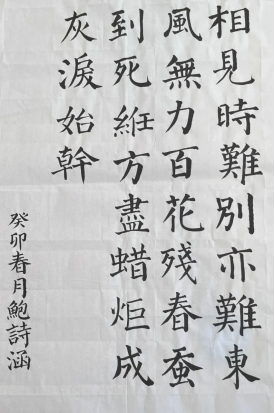 相見時難別亦難東
風無力百花殘春蚕
到死方盡蜡炬成
灰淚始幹
癸卯春月鮑詩涵